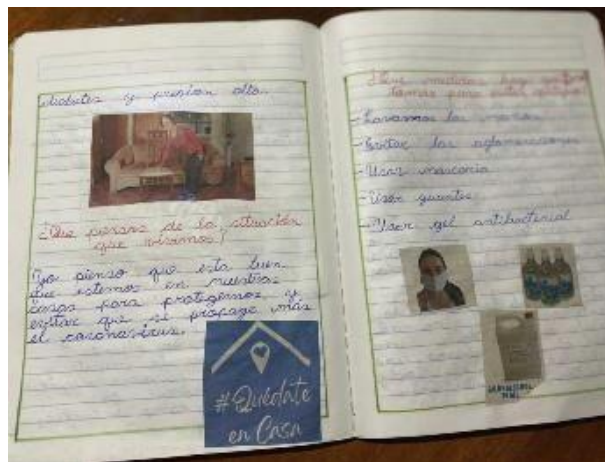 diabetes y presión alta.
¿Que piensas de la situación
que vivimos?
Yo pienso que esta bien
que estemos en nuestras
casas para protegernos y
evitar que se propage más
el coronavirus.
#Quédate
en Casa
¿Que medidas hay que
tomar para evitar
-Lavarnos las manos
-Evitar las aglomeraciones
-Usar mascaria
-Usar guantes
-Usar gel antibacterial